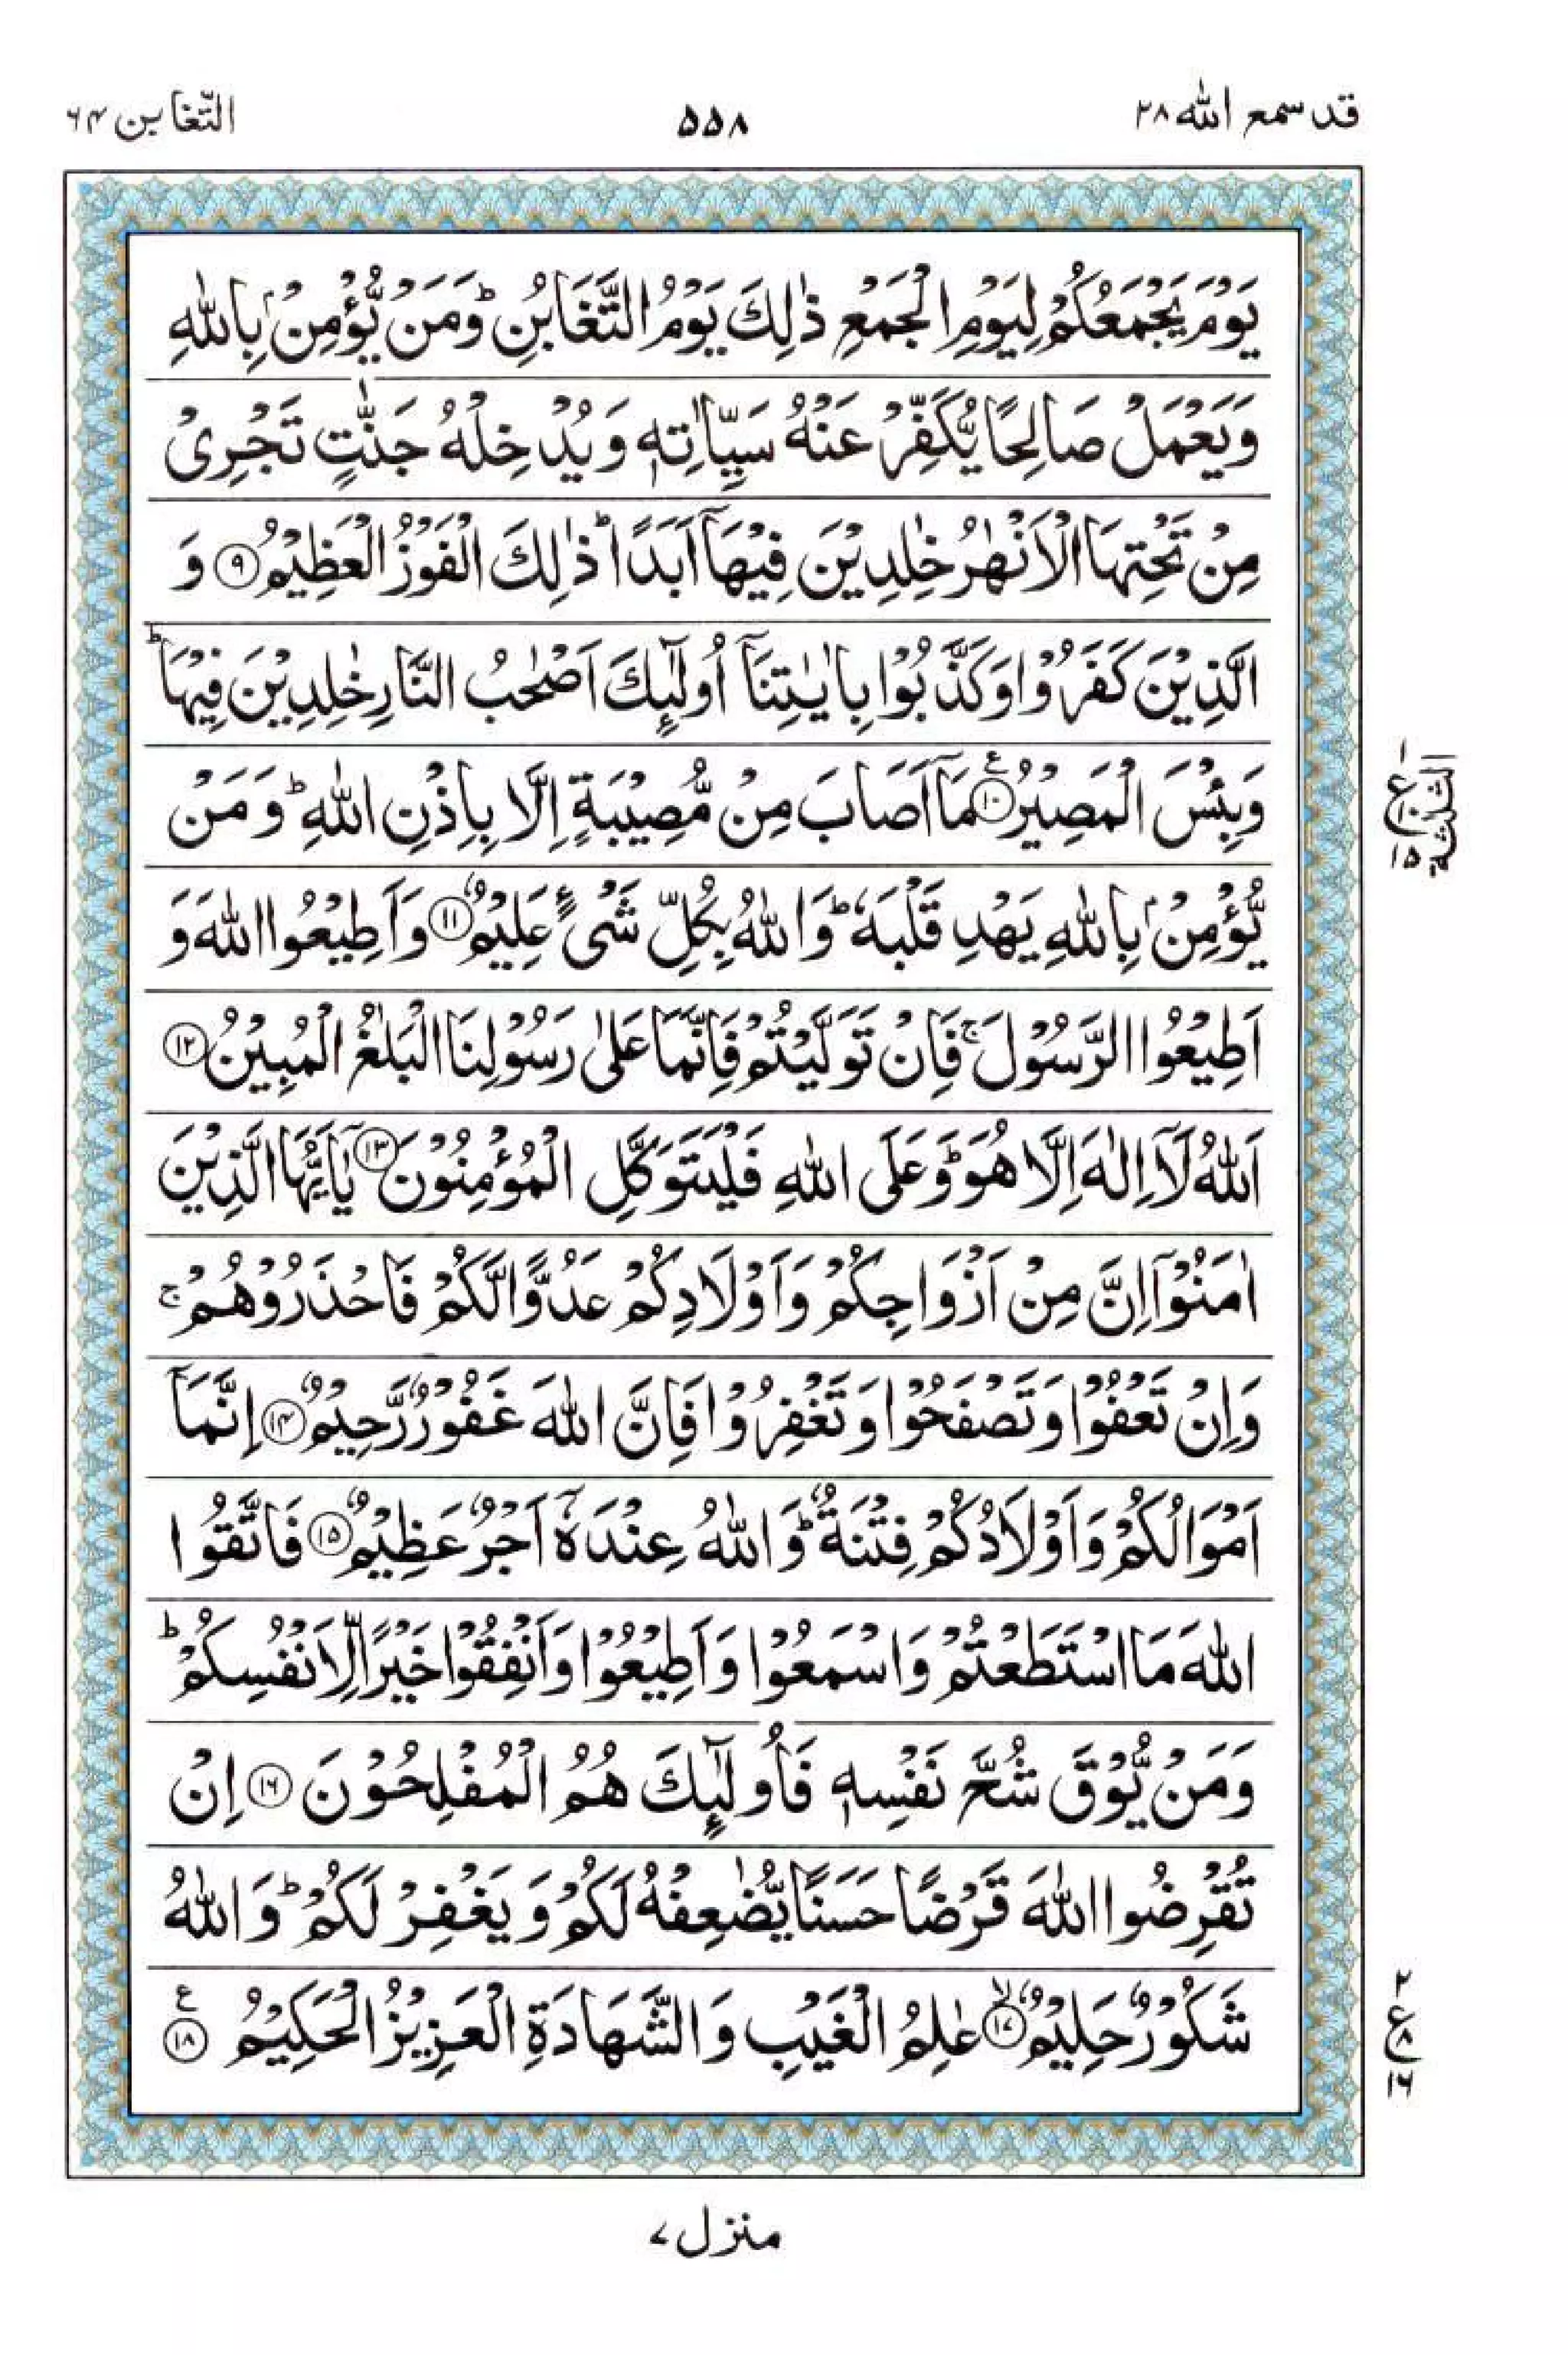 قد سمع الله ٢٨
۵۵۸
التّغابن ۶۴
يَوْمَ يَجْمَعُكُمْ لِيَوْمِ الْجَمْعِ ذٰلِكَ يَوْمُ التَّغَابُنِ ؕ وَمَنْ يُّؤْمِنْۢ بِاللّٰهِ
وَيَعْمَلْ صَالِحًا يُّكَفِّرْ عَنْهُ سَيِّاٰتِهٖ وَيُدْخِلْهُ جَنّٰتٍ تَجْرِىْ
مِنْ تَحْتِهَا الْاَنْهٰرُ خٰلِدِيْنَ فِيْهَاۤ اَبَدًا ؕ ذٰلِكَ الْفَوْزُ الْعَظِيْمُ ﴿۹﴾ وَ
الَّذِيْنَ كَفَرُوْا وَكَذَّبُوْا بِاٰيٰتِنَاۤ اُولٰٓئِكَ اَصْحٰبُ النَّارِ خٰلِدِيْنَ فِيْهَا ؕ
وَبِئْسَ الْمَصِيْرُ ﴿۱۰﴾ ع مَاۤ اَصَابَ مِنْ مُّصِيْبَةٍ اِلَّا بِاِذْنِ اللّٰهِ ؕ وَمَنْ
يُّؤْمِنْۢ بِاللّٰهِ يَهْدِ قَلْبَهٗ ؕ وَاللّٰهُ بِكُلِّ شَىْءٍ عَلِيْمٌ ﴿۱۱﴾ وَاَطِيْعُوا اللّٰهَ وَ
اَطِيْعُوا الرَّسُوْلَ ۚ فَاِنْ تَوَلَّيْتُمْ فَاِنَّمَا عَلٰى رَسُوْلِنَا الْبَلٰغُ الْمُبِيْنُ ﴿۱۲﴾
اَللّٰهُ لَاۤ اِلٰهَ اِلَّا هُوَ ؕ وَعَلَى اللّٰهِ فَلْيَتَوَكَّلِ الْمُؤْمِنُوْنَ ﴿۱۳﴾ يٰۤاَيُّهَا الَّذِيْنَ
اٰمَنُوْۤا اِنَّ مِنْ اَزْوَاجِكُمْ وَاَوْلَادِكُمْ عَدُوًّا لَّكُمْ فَاحْذَرُوْهُمْ ۚ
وَاِنْ تَعْفُوْا وَتَصْفَحُوْا وَتَغْفِرُوْا فَاِنَّ اللّٰهَ غَفُوْرٌ رَّحِيْمٌ ﴿۱۴﴾ اِنَّمَاۤ
اَمْوَالُكُمْ وَاَوْلَادُكُمْ فِتْنَةٌ ؕ وَاللّٰهُ عِنْدَهٗۤ اَجْرٌ عَظِيْمٌ ﴿۱۵﴾ فَاتَّقُوا
اللّٰهَ مَا اسْتَطَعْتُمْ وَاسْمَعُوْا وَاَطِيْعُوْا وَاَنْفِقُوْا خَيْرًا لِّاَنْفُسِكُمْ ؕ
وَمَنْ يُّوْقَ شُحَّ نَفْسِهٖ فَاُولٰٓئِكَ هُمُ الْمُفْلِحُوْنَ ﴿۱۶﴾ اِنْ
تُقْرِضُوا اللّٰهَ قَرْضًا حَسَنًا يُّضٰعِفْهُ لَكُمْ وَيَغْفِرْ لَكُمْ ؕ وَاللّٰهُ
شَكُوْرٌ حَلِيْمٌ ۙ﴿۱۷﴾ عٰلِمُ الْغَيْبِ وَالشَّهَادَةِ الْعَزِيْزُ الْحَكِيْمُ ﴿۱۸﴾ ع
الثلثة
۱
ع
۱۵
۲
ع ۸
۱۶
منزل ۷